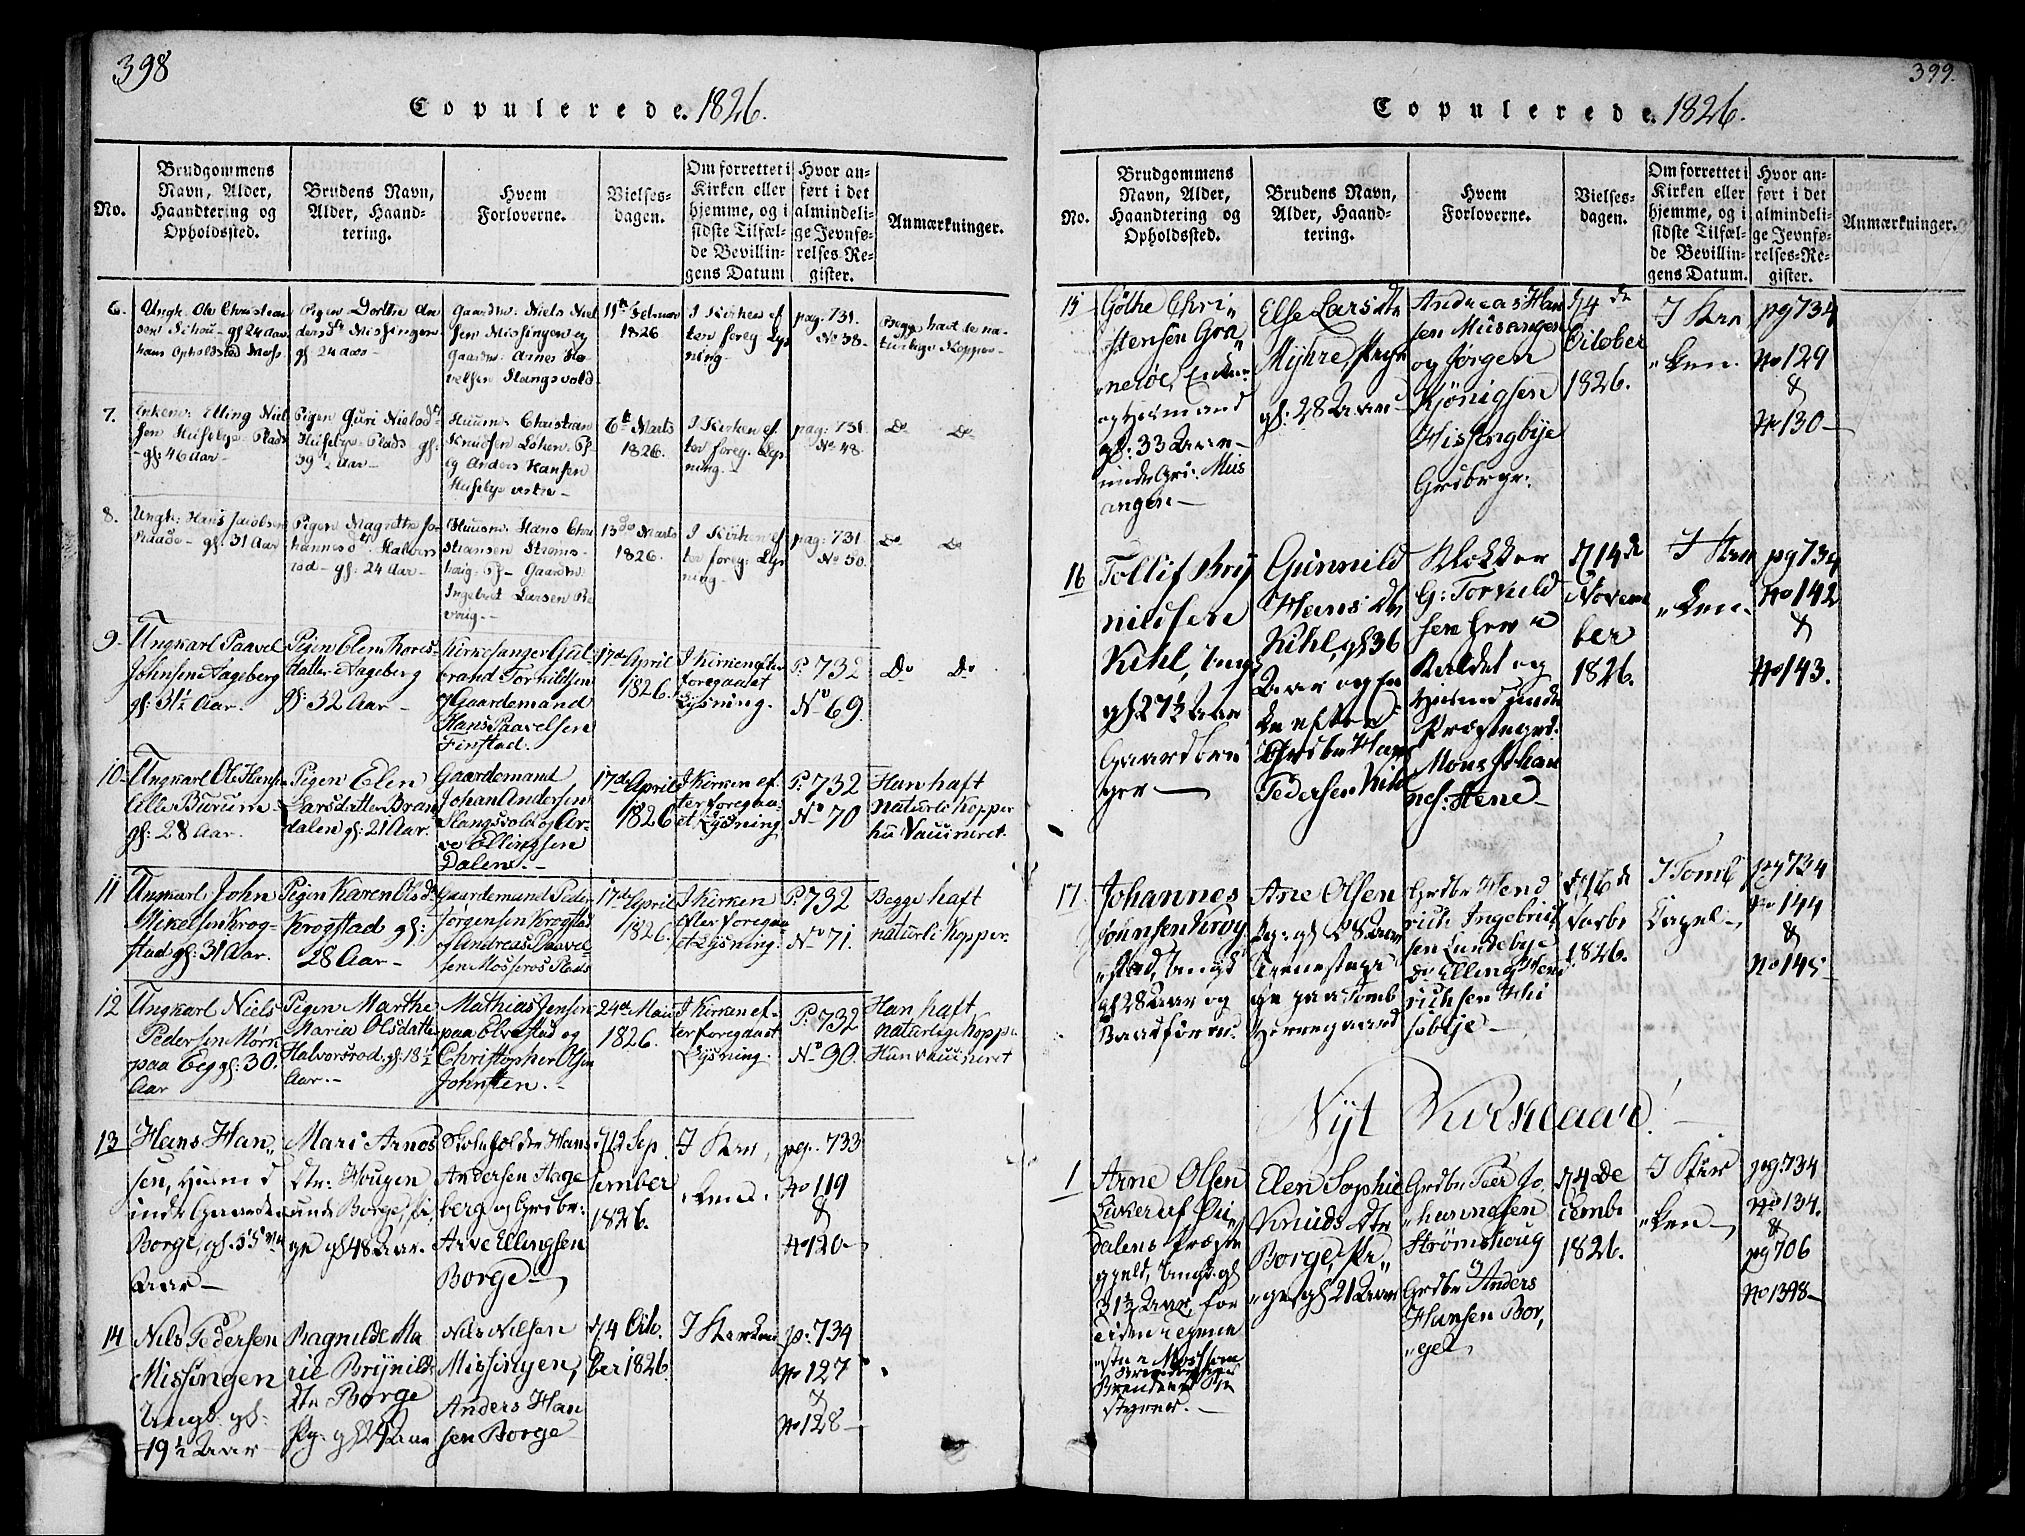 398
Copulerede. 1826.
No.
Brudgommens
Navn, Alder,
Haandtering og
Opholdssted.
Brudens Navn,
Alder, Haand-
tering.
Hvem
Forloverne.
Vielses-
dagen.
Om forrettet i
Kirken eller
hjemme, og i
sidste Tilfæl-
de Bevillin-
gens Datum
Hvor an-
ført i det
almindeli-
ge Jevnfø-
relses-Re-
gister.
Anmærkninger.
6.
Ungk. Ole Christian
sen gl 24 aar
hans Opholdsted Moss
Pigen Dorthe An
dersd. Missingen
gl 24 aar
Gaardm. Niels Niel
sen Missingen og
Gaardm. Arnes
velsen Slangsvold
11te Februar
1826
I Kirken ef
ter foreg Lys
ning
pag: 731.
No 38.
Begge havt de na
turlige Kopper
7.
Enkem: Elling Niel
sen Huseby Plads
gl: 46 Aar
Pigen Guri Nielsd
Huseby Plads gl:
39 1/2 Aar
Huusm: Christian
Knudsen
og Anders Hansen
Huseby vestre
6te Marts
1826.
I Kirken ef
ter foreg. Lys
ning
pag: 731.
No 48.
Do Do
8.
Ungk: Hans Jacobsen
Raade gl: 31 Aar
Pigen Magrethe Jo
hannesd. Halvors
rød gl: 24 Aar
Huusm: Hans Chri
stiansen Strøms
houg Gaardm:
Ingebret Larsen
13de Marts
1826.
I Kirken ef
ter foreg: Lys
ning
pag: 731
No 50.
Do Do
9.
Ungkarl Paavel
Johnsen Aageberg
gl: 31 1/2 Aar.
Pigen Elen Lars-
datter Aageberg
gl: 32 Aar
Kirkesanger Gul-
brand Torkildsen
og Gaardemand
Hans Paavelsen
Finstad.
17de April
1826.
I Kirken efter
foregaaet
Lysning.
P: 732
No 69.
Do Do
10
Ungkarl Ole Hansen
Lille Burum
gl: 28 Aar.
Pigen Elen
Larsdatter Bran
dalen gl: 21 Aar.
Gaardemand
Johan Andersen
Slangsvold og Ar-
ve Ellingsen
Dalen.
17de April
1826
I Kirken ef
ter foregaa
et Lysning
P: 732
No 70
Han haft
naturli Kopper
hu Vauineret.
11
Ungkarl John
Mikelsen Krog-
stad gl: 31 Aar.
Pigen Karen Olsd.
Krogstad gl:
28 Aar
Gaardemand Peder
Jorgensen Krogstad
og Andreas Paavel
sen Mosseros Plads
17de April
1826.
I Kirken
efter foregaa
et Lysning.
P: 732
No 71.
Begge haft
naturli Kopper
12
Ungkarl Niels
Pedersen Mørn
paa Eeg gl: 30.
Aar
Pigen Marthe
Maria Olsdatter
Halvorsrod. gl: 18 1/2
Aar.
Mathias Jensen
paa Elvestad og
Christopher Olsen
Johnsten.
24de Mai
1826.
I Kirken ef-
ter foregaaet
Lysning.
P: 732
No 90.
Han haft
naturlige Kopper
Hun vauineret
13
Hans Han
sen, Huusmd
under Gaarden
Borge, gl: 55
Aar
Mari Arnes
Dtr: Hougen
under Borge, Pi
ge gl 48 Aar.
Skoleholder Hans
Andersen Aage
berg og Grdbr:
Arve Ellingsen
Borge
d/12 Sep
tember
1826.
I Kir
ken.
pg: 733
No 119
&
No 120
14
Nils Pedersen
Missingen
Ungk. gl:
19 1/2 Aar
Ragnilde Ma
rie Brynilds
Dtr Borge
Pg: gl 29 Aar
Nils Nilsen
Missingen,
Anders Han
sen Borge
d/4 Octo
ber 1826
I Kirken
pg: 734
No 127
&
No 128
399.
Copulerede. 1826.
No.
Brudgommens
Navn, Alder,
Haandtering og
Opholdssted.
Brudens Navn,
Alder, Haand-
tering.
Hvem
Forloverne.
Vielses-
dagen.
Om forrettet i
Kirken eller
hjemme, og i
sidste Tilfæl-
de Bevillin-
gens Datum.
Hvor an-
ført i det
almindeli-
ge Jevnfø-
relses-Re-
gister.
Anmærkninger.
15
Göthe Chri
stensen Gra
nerøe, Enkem
og Huusmand
gl: 33 Aar
under Grd: Mis
singen
Else Lars Dtr
Myhre, Pige
gl: 28 Aar
Andreas Han
sen Missingen
og Jørgen
Kjönigsen
Missingbye
Grdbrgr:
d/4de
October
1826.
I Kir
ken.
pg 734
No 129
&
No 130
16
Tollif Bryn
nildsen
Kihl, Ungk
gl 27 1/2 Aar
Gaardbru
ger
Gunnild
Hans Dtr
Kihl, gl 36
Aar og En
ke efter
Grdbr Hans
Pedersen Kihl
Klokker
G: Torkild
sen her i
Kaldet og
Huusmd under
Præstegrd.
Mons Johan
nes: Stene
d/14de
Novem
ber
1826.
I Kir
ken
pg 734
No 142
&
No 143.
17
Johannes
Jounsen Krog
stad, Ungk
gl 28 Aar og
Baadfører
Ane Olsen
Pg: gl 28 Aar
Tjenestepi
ge paa Tomb
Herregaard
Grdbr Hend
rich Ingebrigt
sen Lundebye
Do Elling Hend
richsen
sebye
d/16de
Novbr
1826.
I Tomb
Capel
pg 734
No 144
&
No 145
Nyt Kirkeaar!
1
Arne Olsen
dalens Præste
gjeld, Ungk. gl
31 1/2 Aar, for
tiden
i Moss som
styrer.
Elen Sophie
Knuds Dtr
Borge, Pi
ge gl 21 Aar
Grdbr Peder Jo
hannesen
Strømshoug
og
Grdbr Anders
Hansen Bor
ge
d/4 De
cembr
1826.
I Kir
ken
pg: 734
No 134.
&
pg 706
No 1398